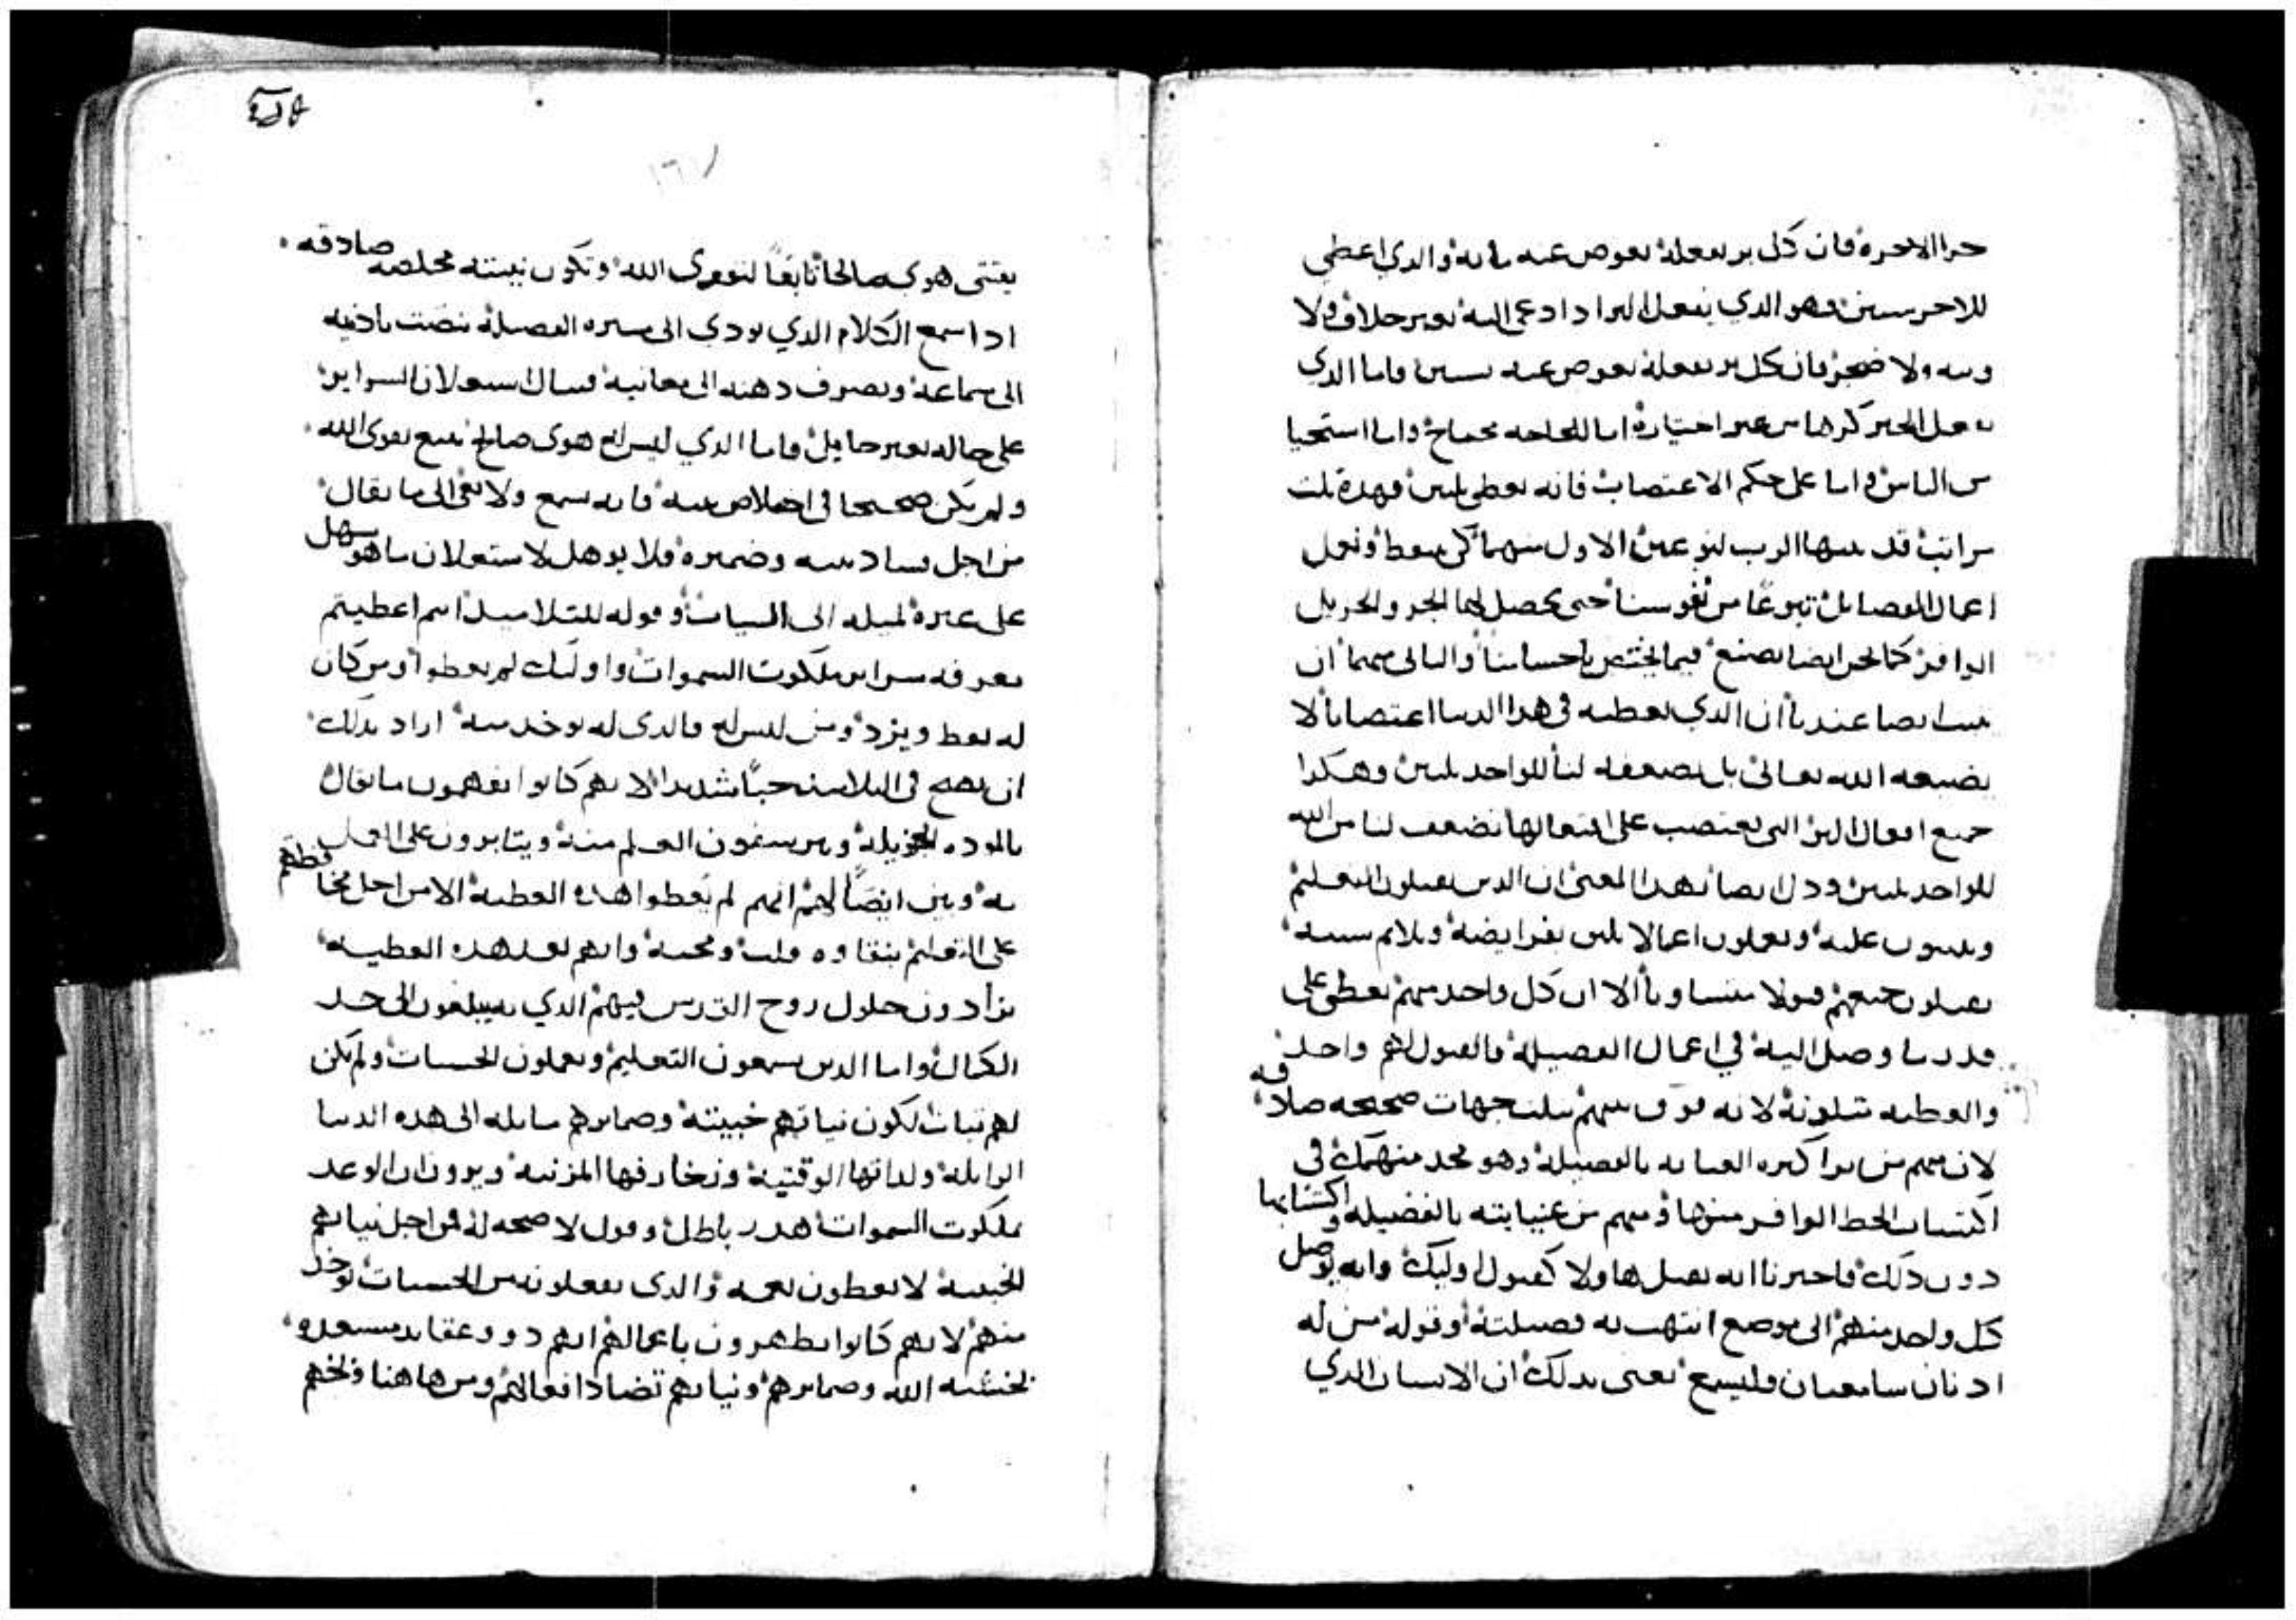 جزا الاخره فان كل بر نفعله نعوض عنه مايه والدي اعطي
للاخر ستين فهو الدي يفعل البر ادا دعي اليه بغير خلاف ولا
ونيه ولا ضجر فان كل بر نفعله نعوض عنه ستين فاما الدي
يفعل الخير كرها من غير اختياره اما للجاجه محتاج واما استحيا
من الناس واما على حكم الاغتصاب فانه يعطي ثلثين فهده ثلث
مراتب قد بينها الرب لنوعين الاول منهما كي نعط ونعمل
اعمال الفضايل تبرعا من نفوسنا حتى يحصل لنا الجزو الجزيل
الوافر كما نحن ايضا نصنع فيما يختص باحساننا والتاني منهما ان
يبت ايضا عندنا ان الدي نعطيه في هدا الدنيا اغتصابا لا
يضيعه الله تعالى بل يضعفه لنا للواحد ثلثين وهكدا
جميع افعال البر التي نغتصب على افتعالها تضعف لنا من الله
للواحد ثلثين ودل ايضا بهدا المعنى ان الدين يقبلون التعليم
ويثبتون عليه ويعملون اعمالا تليق بفرايضه وتلايم سننه
يقبلون جميعهم قبولا متساويا الا ان كل واحد منهم يعطى على
قدر ما وصل اليه في اعمال الفضيله فالقبول لهم واحد
والعطيه متلونه لانه فرق بينهم بثلث جهات صحيحه صادقه
لان منهم من يرا كثيره العنايه بالفضيله وهو مجد منهمك في
اكتساب الحظ الوافر منها ومنهم من عنايته بالفضيله واكتسابها
دون دلك فاخبرنا انه يقبل هاولا كقبول اوليك وانه يوصل
كل واحد منهم الى موضع انتهت به فضيلته وقوله من له
ادنان سامعتان فليسمع يعني بدلك ان الانسان الدي
يقتني هوي صالحا تابعا لتقوى الله وتكون نيته مخلصه صادقه
ادا سمع الكلام الدي يودي الى سيره الفضيله ينصت بادنيه
الى سماعه ويصرف دهنه الى معانيه فينال استعلان السراير
على حاله بغير حايل فاما الدي ليس له هوى صالح يتبع تقوى الله
ولم يكن صحيحا في اخلاص نيته فانه يسمع ولا يعي الى ما يقال
من اجل فساد نيته وضميره فلا يوهل لاستعلان ما هو سهل
على غيره لميله الى السيات وقوله للتلاميد انتم اعطيتم
معرفه سراير ملكوت السموات واوليك لم يعطوا ومن كان
له يعط ويزد ومن ليس له فالدى له يوخد منه اراد بدلك
ان يهيج في التلاميد حبا شديدا لانهم كانوا يفهمون ما يقال
بالموده الجزيله ويلتمسون العلم منه ويتابرون على العمل
به وبين ايضا لهم انهم لم يعطوا هده العطيه الا من اجل حفاظهم
على التعليم بنقاوه قلب ومحبه وانهم بعد هده العطيه
يزادون حلول روح القدس فيهم الدي به يبلغون الى حد
الكمال واما الدين يسمعون التعليم ويعملون الحسنات ولم يكن
لهم نيات لكون نياتهم خبيثه وضمايرهم مايله الى هده الدنيا
الزايله ولداتها الوقتيه وزخارفها المزينه ويرون ان الوعد
بملكوت السموات هدر باطل وقول لا صحه له فمن اجل نياتهم
الخبيثه لا يعطون نعمه والدى يفعلونه من الحسنات يوخد
منهم لانهم كانوا يظهرون باعمالهم انهم دوو عقايد مستعده
لخشية الله وضمايرهم ونياتهم تضادد افعالهم ومن هاهنا وبخهم